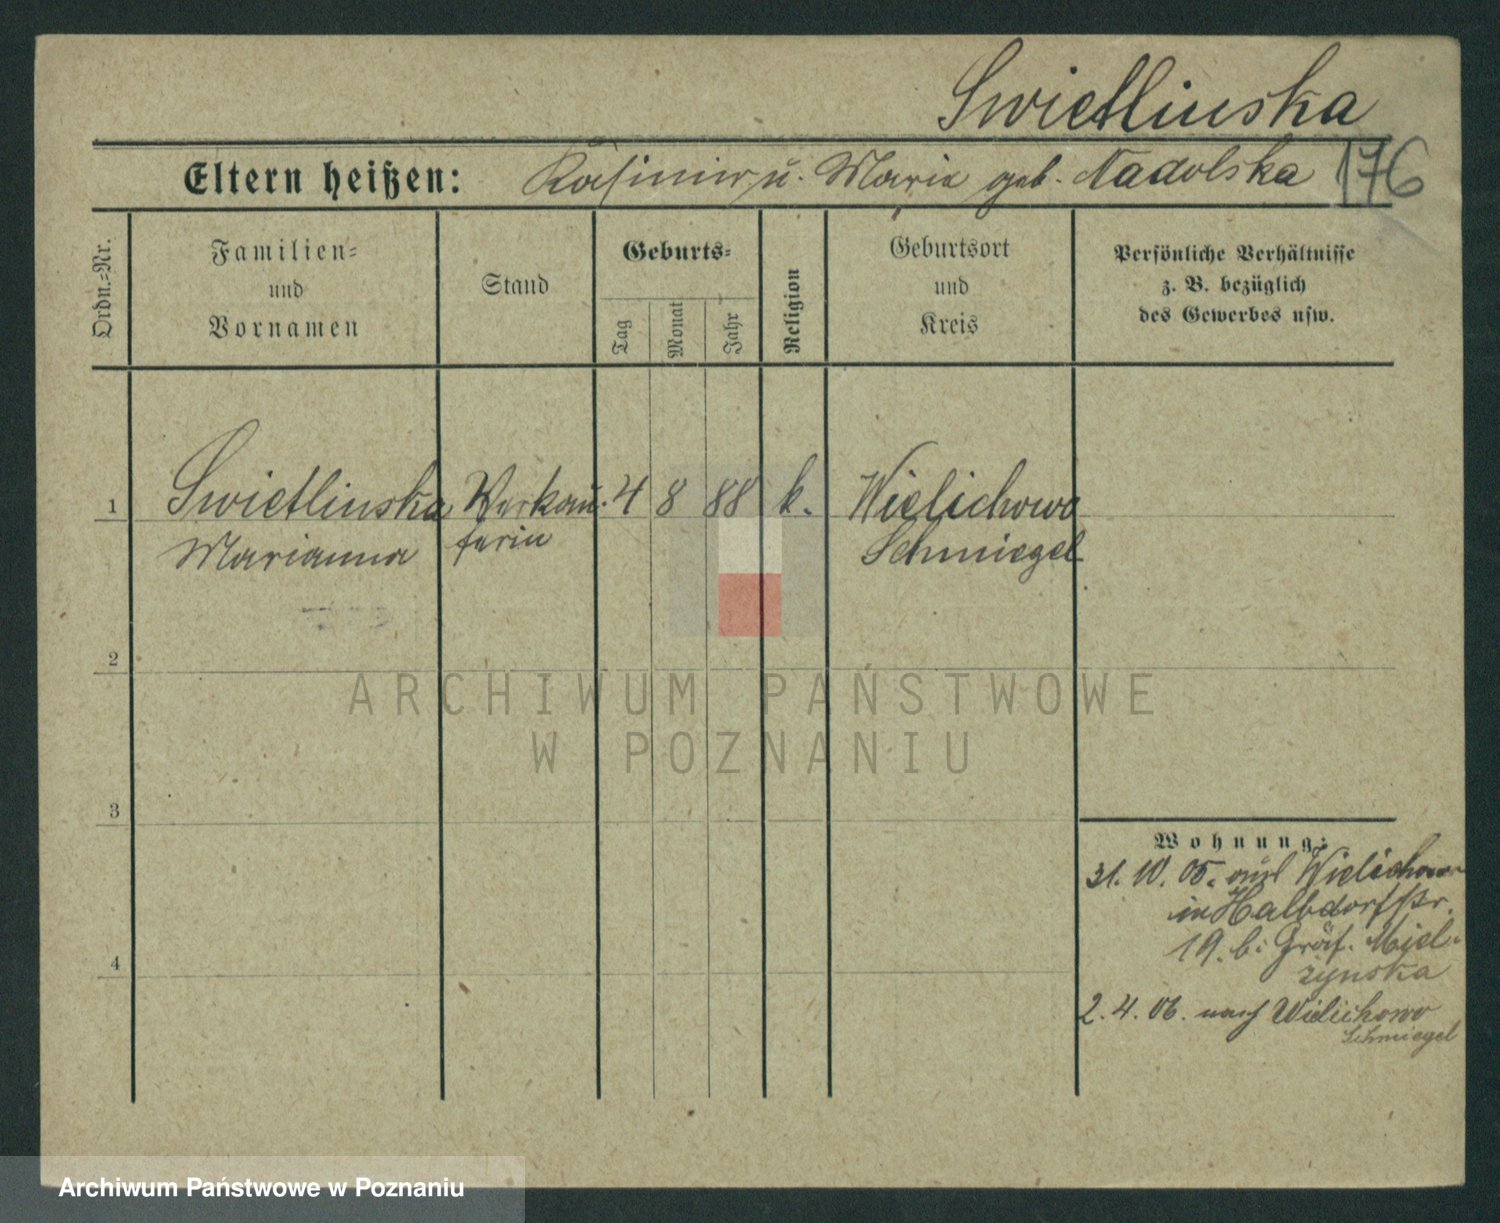 Swietlinska
Eltern heißen: Kasimir u. Maria geb. Nadolska 176
Ordn.-Nr.
Familien-
und
Vornamen
Stand
Geburts-
Tag
Monat
Jahr
Religion
Geburtsort
und
Kreis
Persönliche Verhältnisse
z. B. bezüglich
des Gewerbes usw.
1 Swietlinska Verkäu- 4 8 88 k. Wielichowo
Marianna ferin Schmiegel
2
ARCHIWUM PAŃSTWOWE
W POZNANIU
3
Wohnung:
31. 10. 05. aus Wielichowo
in Halbdorfstr.
19. b. Gräf. Miel-
zynska
4
2. 4. 06. nach Wielichowo
Schmiegel
Archiwum Państwowe w Poznaniu